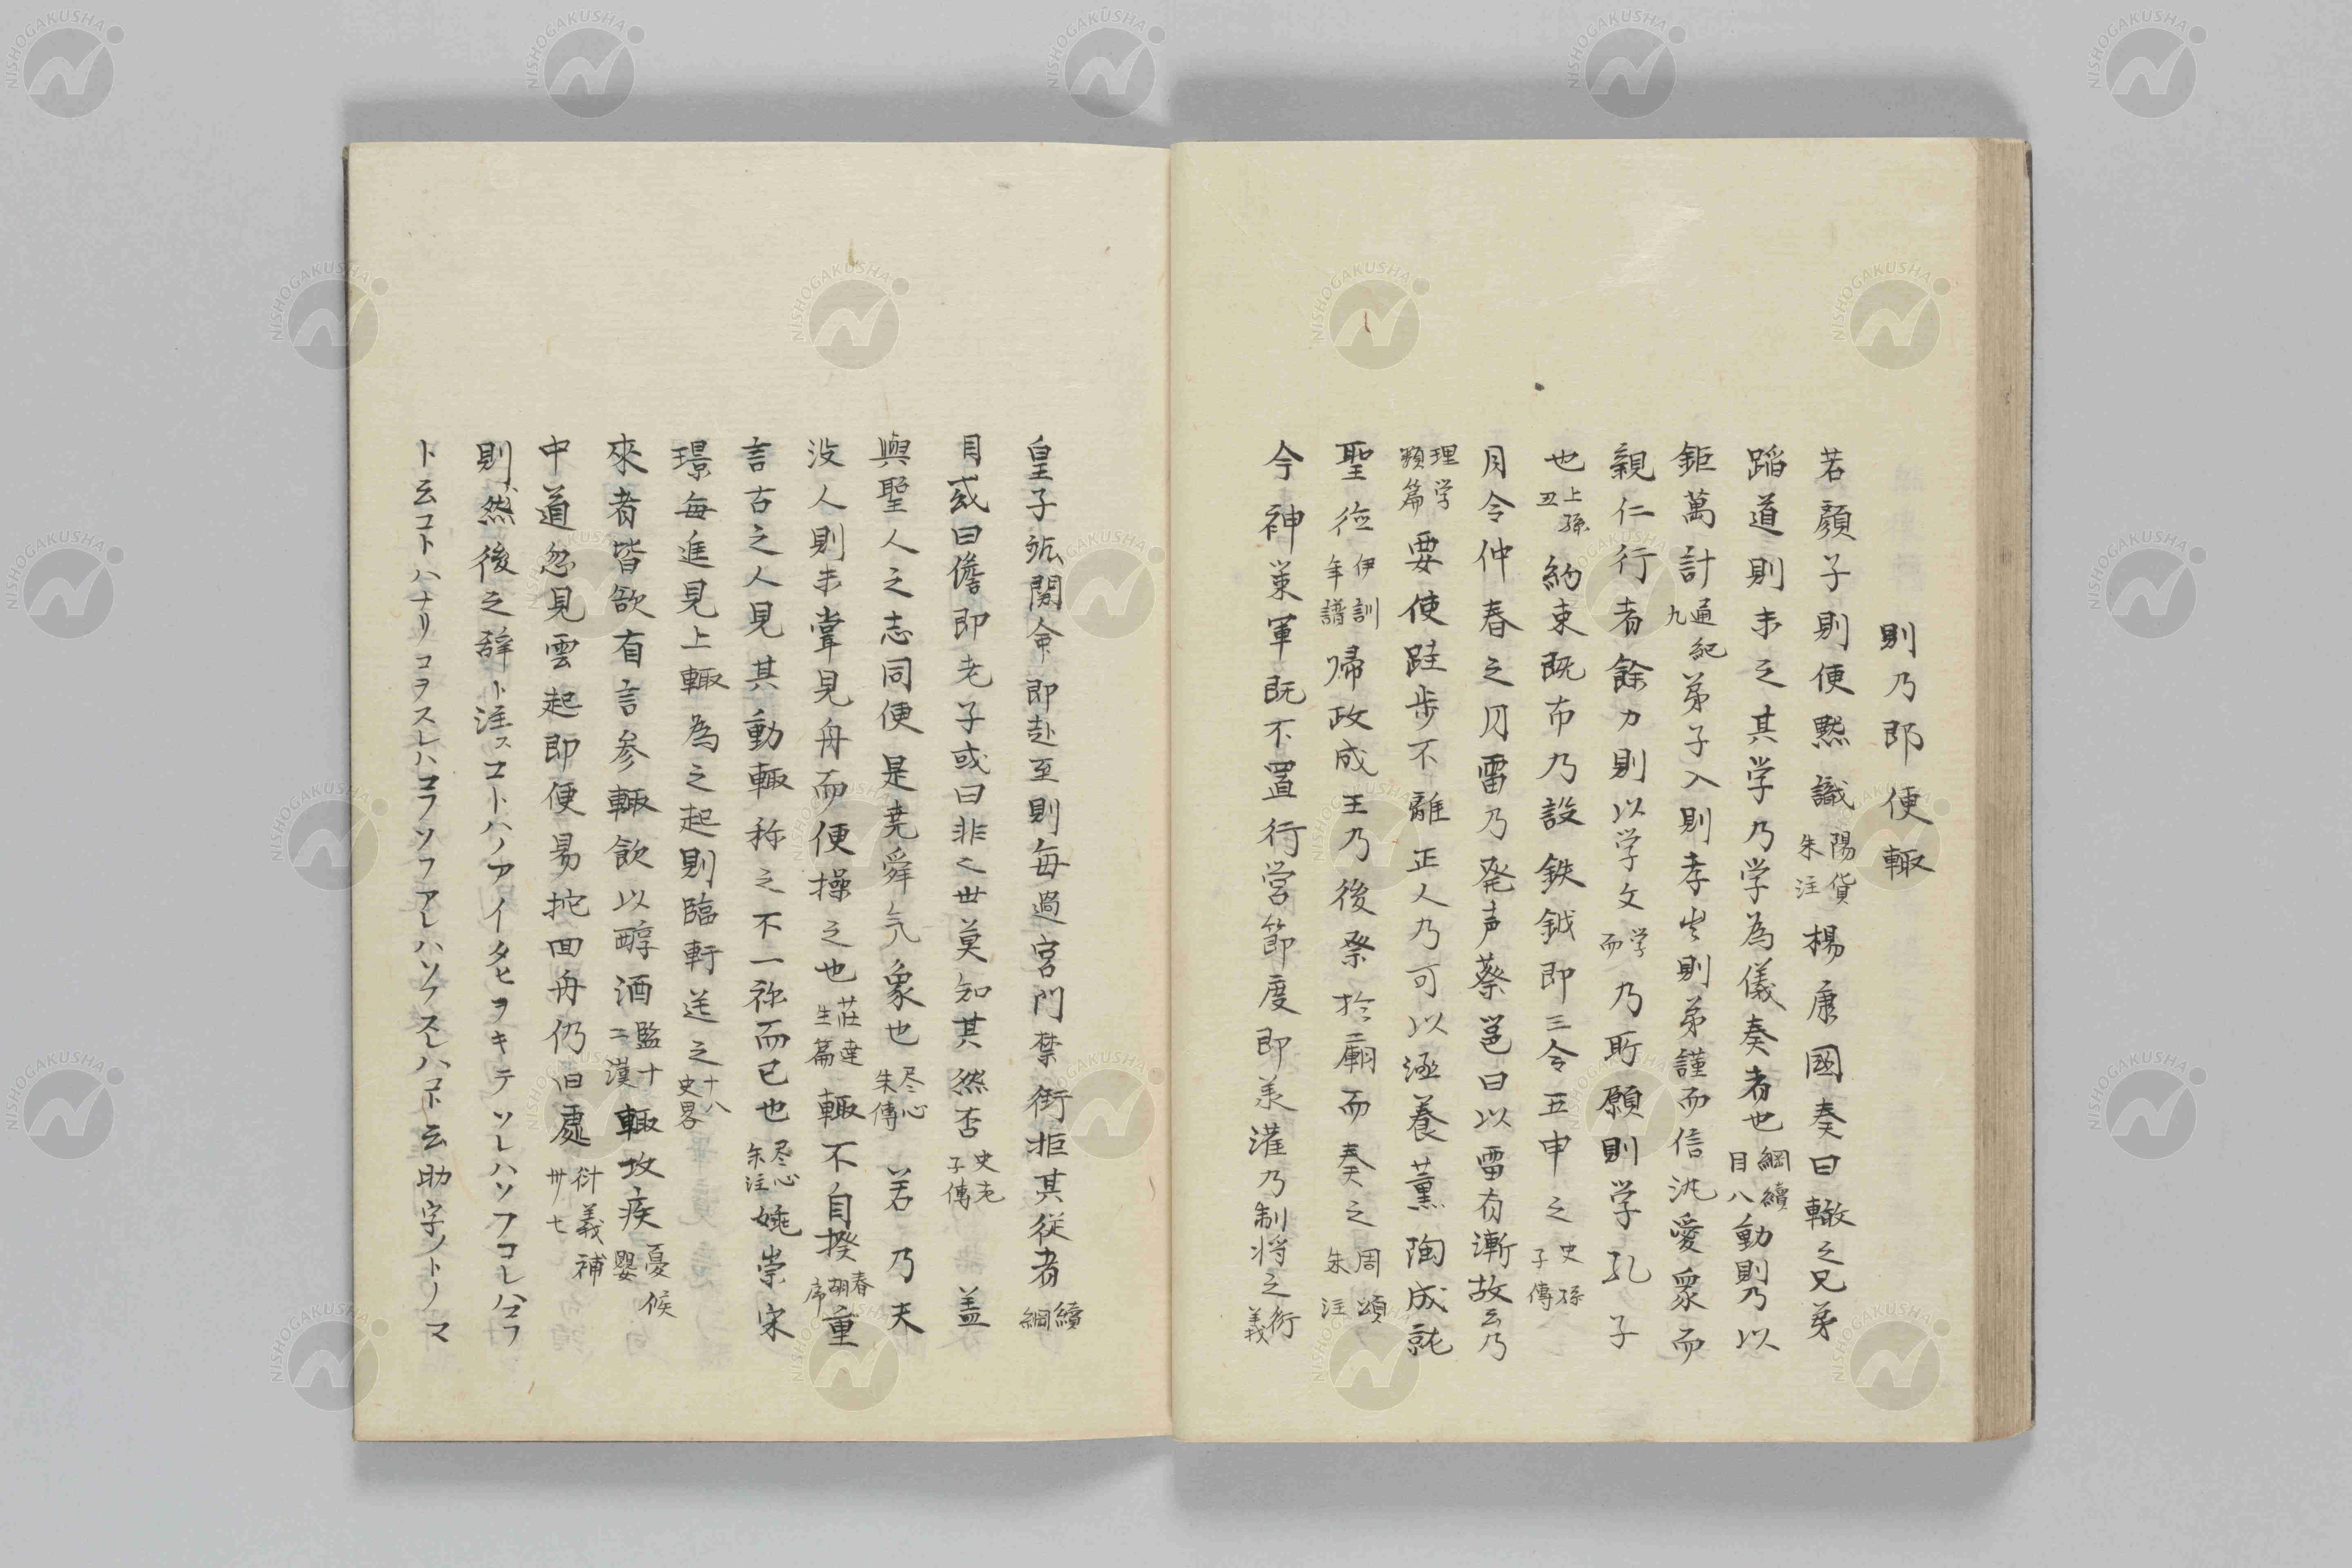 則乃即便輙
若顏子則便黙識陽貨朱注楊康國奏曰轍之兄弟
蹈道則未之其学乃学為儀奏者也綱續目八動則乃以
鉅萬計通紀九弟子入則孝出則弟謹而信汎愛衆而
親仁行有餘力則以学文学而乃所願則学孔子
也上孫丑約束既布乃設鉄鉞即三令五申之史孫子傳
月令仲春之月雷乃発声蔡邕曰以雷有漸故云乃
理学類篇要使跬歩不離正人乃可以涵養薫陶成就
聖徳伊訓年譜帰政成王乃後祭於廟而奏之周頌朱注
今神策軍既不置行営節度即羕灌乃制将之衍義
皇子竑聞命即赴至則毎過宮門禁衛拒其従者續綱
目或曰儋即老子或曰非也世莫知其然否史老子傳 盖
與聖人之志同便是堯舜気象也尽心朱傳 若乃夫
没人則未甞見舟而便操之也荘達生篇輙不自揆春胡序重
言古之人見其動輙称之不一称而已也尽心朱注姚崇宋
璟毎進見上輙為之起則臨軒送之十八史畧
來者皆欲有言参輙飲以醇酒鑑十二漢輙攻疾憂嬰候
中道忽見雲起即便易柁回舟仍旧處衍義補卅七
則然後之辞ト注スコトハノアイタヒヲキテソレハソフコレハコフ
ト云コトハナリコヲスレハコフソフアレハソフスレハコト云助字ノトリマ